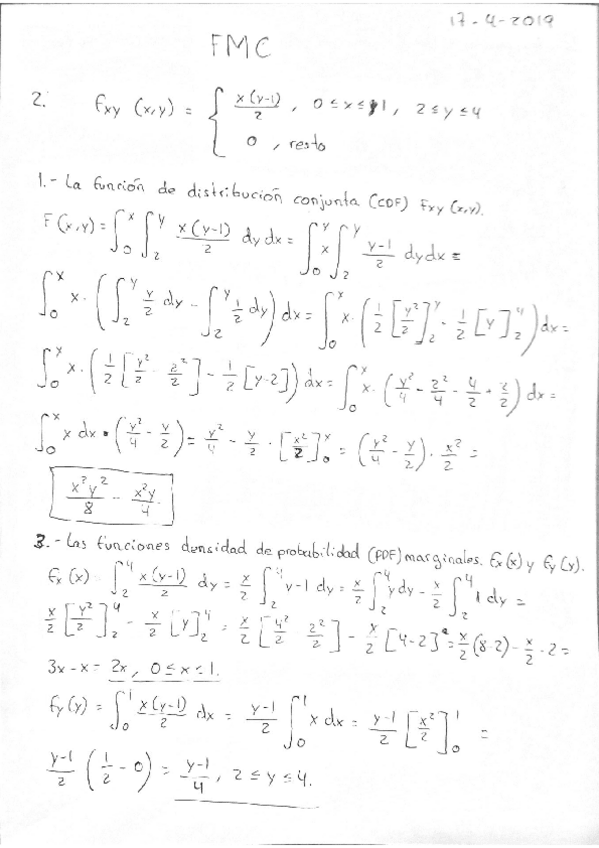 17-4-2019
FMC
2. fxy (x,y) = { x(y-1)/2 , 0 ≤ x ≤ 1, 2 ≤ y ≤ 4
0 , resto
1.- La función de distribución conjunta (CDF) Fxy (x,y).
F(x,y) = ∫₀ˣ ∫₂ʸ x(y-1)/2 dy dx = ∫₀ˣ x ∫₂ʸ y-1/2 dy dx =
∫₀ˣ x · (∫₂ʸ y/2 dy - ∫₂ʸ 1/2 dy) dx = ∫₀ˣ x · (1/2 [y²/2]₂ʸ - 1/2 [y]₂⁴) dx =
∫₀ˣ x · (1/2 [y²/2 - 2²/2] - 1/2 [y-2]) dx = ∫₀ˣ x · (y²/4 - 2²/4 - y/2 + 2/2) dx =
∫₀ˣ x dx · (y²/4 - y/2) = y²/4 - y/2 · [x²/2]₀ˣ = (y²/4 - y/2) · x²/2 =
x²y²/8 - x²y/4
3.- Las funciones densidad de probabilidad (PDF) marginales. fx(x) y fy(y).
fx(x) = ∫₂⁴ x(y-1)/2 dy = x/2 ∫₂⁴ y-1 dy = x/2 ∫₂⁴ y dy - x/2 ∫₂⁴ 1 dy =
x/2 [y²/2]₂⁴ - x/2 [y]₂⁴ = x/2 [4²/2 2²/2] - x/2 [4-2] = x/2 (8-2) - x/2 · 2 =
3x - x = 2x, 0 ≤ x ≤ 1.
fy(y) = ∫₀¹ x(y-1)/2 dx = y-1/2 ∫₀¹ x dx = y-1/2 [x²/2]₀¹ =
y-1/2 (1/2 - 0) = y-1/4, 2 ≤ y ≤ 4.